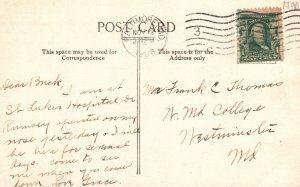 POST CARD
This space may be used for
Correspondence
This space is for the
Address only
BALTIMORE, MD.
NOV
3
Dear Buck
I am at
St Lukes Hospital Dr
Rumsey operated on my
nose yesterday & I will
be here for several
days. come to see
me when you come
down
Mr Frank C Thomas
W. Md College
Westminster
Md